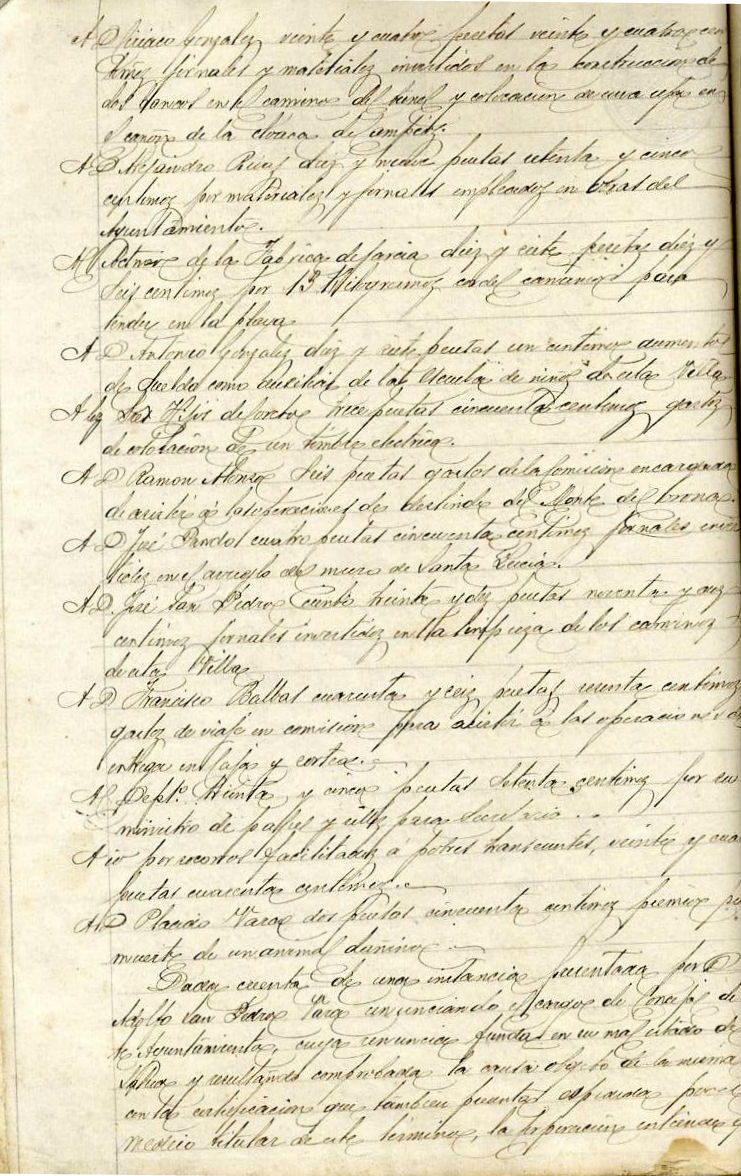 A D. Ciriaco Gonzalez veinte y cuatro pesetas veinte y cuatro cen
timoz jornales y materiales invertidos en la construccion de
dos bancos en el camino del tunel y colocacion de una cepa en
el canon de la cloaca de
A D. Alejandro Rivas diez y nueve pesetas setenta y cinco
centimoz por materiales y jornales empleados en obras del
Ayuntamiento.
Al de la Fabrica de jarcia diez y siete pesetas diez y
seis centimoz por 13 Kilogramoz cordel para
tender en la playa
A D. Antonio Gonzalez diez y siete pesetas un centimo aumentos
de sueldo como auxiliar de la escuela de niños de esta Villa
A los Sres Hijos de trece pesetas cincuenta centimoz gastoz
de colocacion de un timbre electrico.
A D. Ramon Alonso seis pesetas gastos de la comision encargada
de asistir á las operaciones de deslinde del Monte de
A D. José Pando cuatro pesetas cincuenta centimoz jornales inver
tidoz en el arreglo del muro de Santa Lucia.
A D. José San Pedro ciento treinta y dos pesetas noventa y
centimoz jornales invertidoz en la limpieza de los caminoz
de esta Villa
A D. Francisco Balbas cuarenta y seis pesetas sesenta centimoz
gastoz de viaje en comision para asistir á las operaciones de
entrega en Caja y sorteo.
Al Depst.º treinta y cinco pesetas setenta centimoz por su
ministro de y para
A id por socorros facilitadoz á pobres transeuntes, veinte y cuatro
pesetas cuarenta centimoz.
A D. Placido Vara dos pesetas cincuenta centimoz premio por
muerte de un animal dañino.
Dada cuenta de una instancia presentada por D.
Adolfo San Pedro Vara renunciando el cargo de Concejal de
te Ayuntamiento, cuya renuncia funda en su mal estado de
salud y resultando comprobada la causa objeto de la misma
con la certificacion que tambien presenta espedida por el
medico titular de este termino, la Corporacion entiende